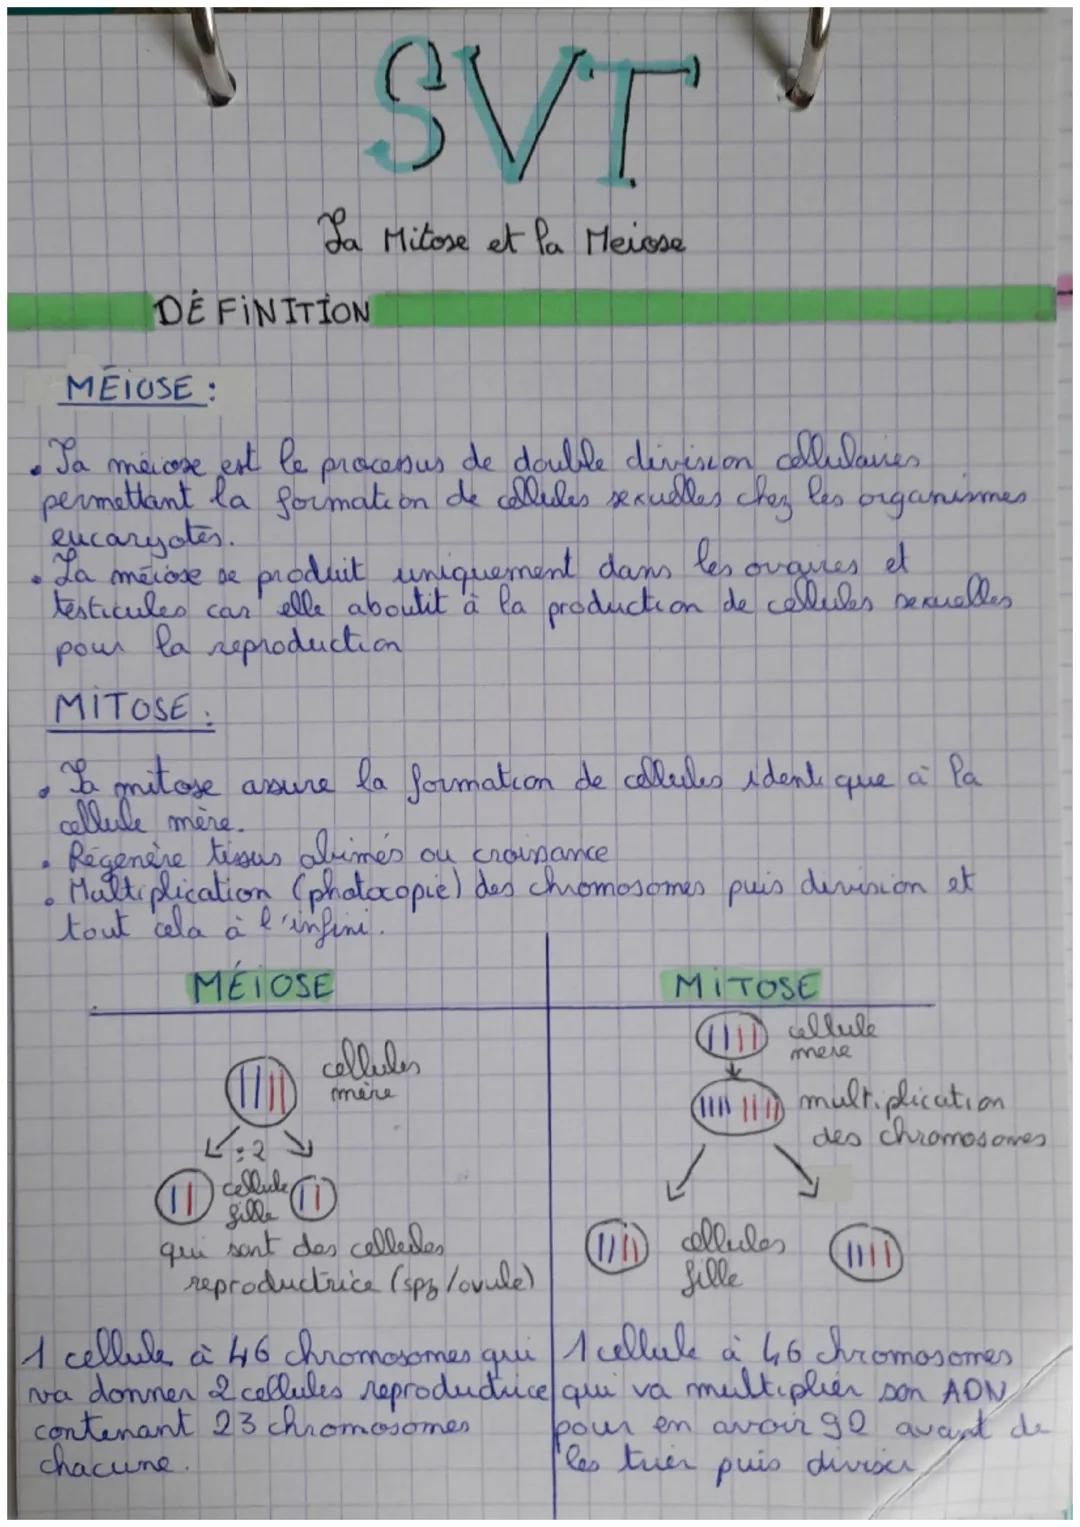 SVT
La Mitose et la Meiose
DÉFINITION
MÉIOSE :
• La méiose est le processus de double division cellulaires
permettant la formation de cellules sexuelles chez les organismes
eucaryotes.
• La méiose se produit uniquement dans les ovaires et
testicules car elle aboutit à la production de cellules sexuelles
pour la reproduction
MITOSE :
• La mitose assure la formation de cellules identique à la
cellule mère.
• Régenère tissus abimés ou croissance
• Multiplication (photocopie) des chromosomes puis division et
tout cela à l'infini.
MÉIOSE
cellules
mère
:2
cellule
fille
qui sont des cellules
reproductrice (spz/ovule)
1 cellule à 46 chromosomes qui
va donner 2 cellules reproductrice
contenant 23 chromosomes
chacune.
MITOSE
cellule
mere
multiplication
des chromosomes
cellules
fille
1 cellule à 46 chromosomes
qui va multiplier son ADN
pour en avoir 92 avant de
les trier puis diviser